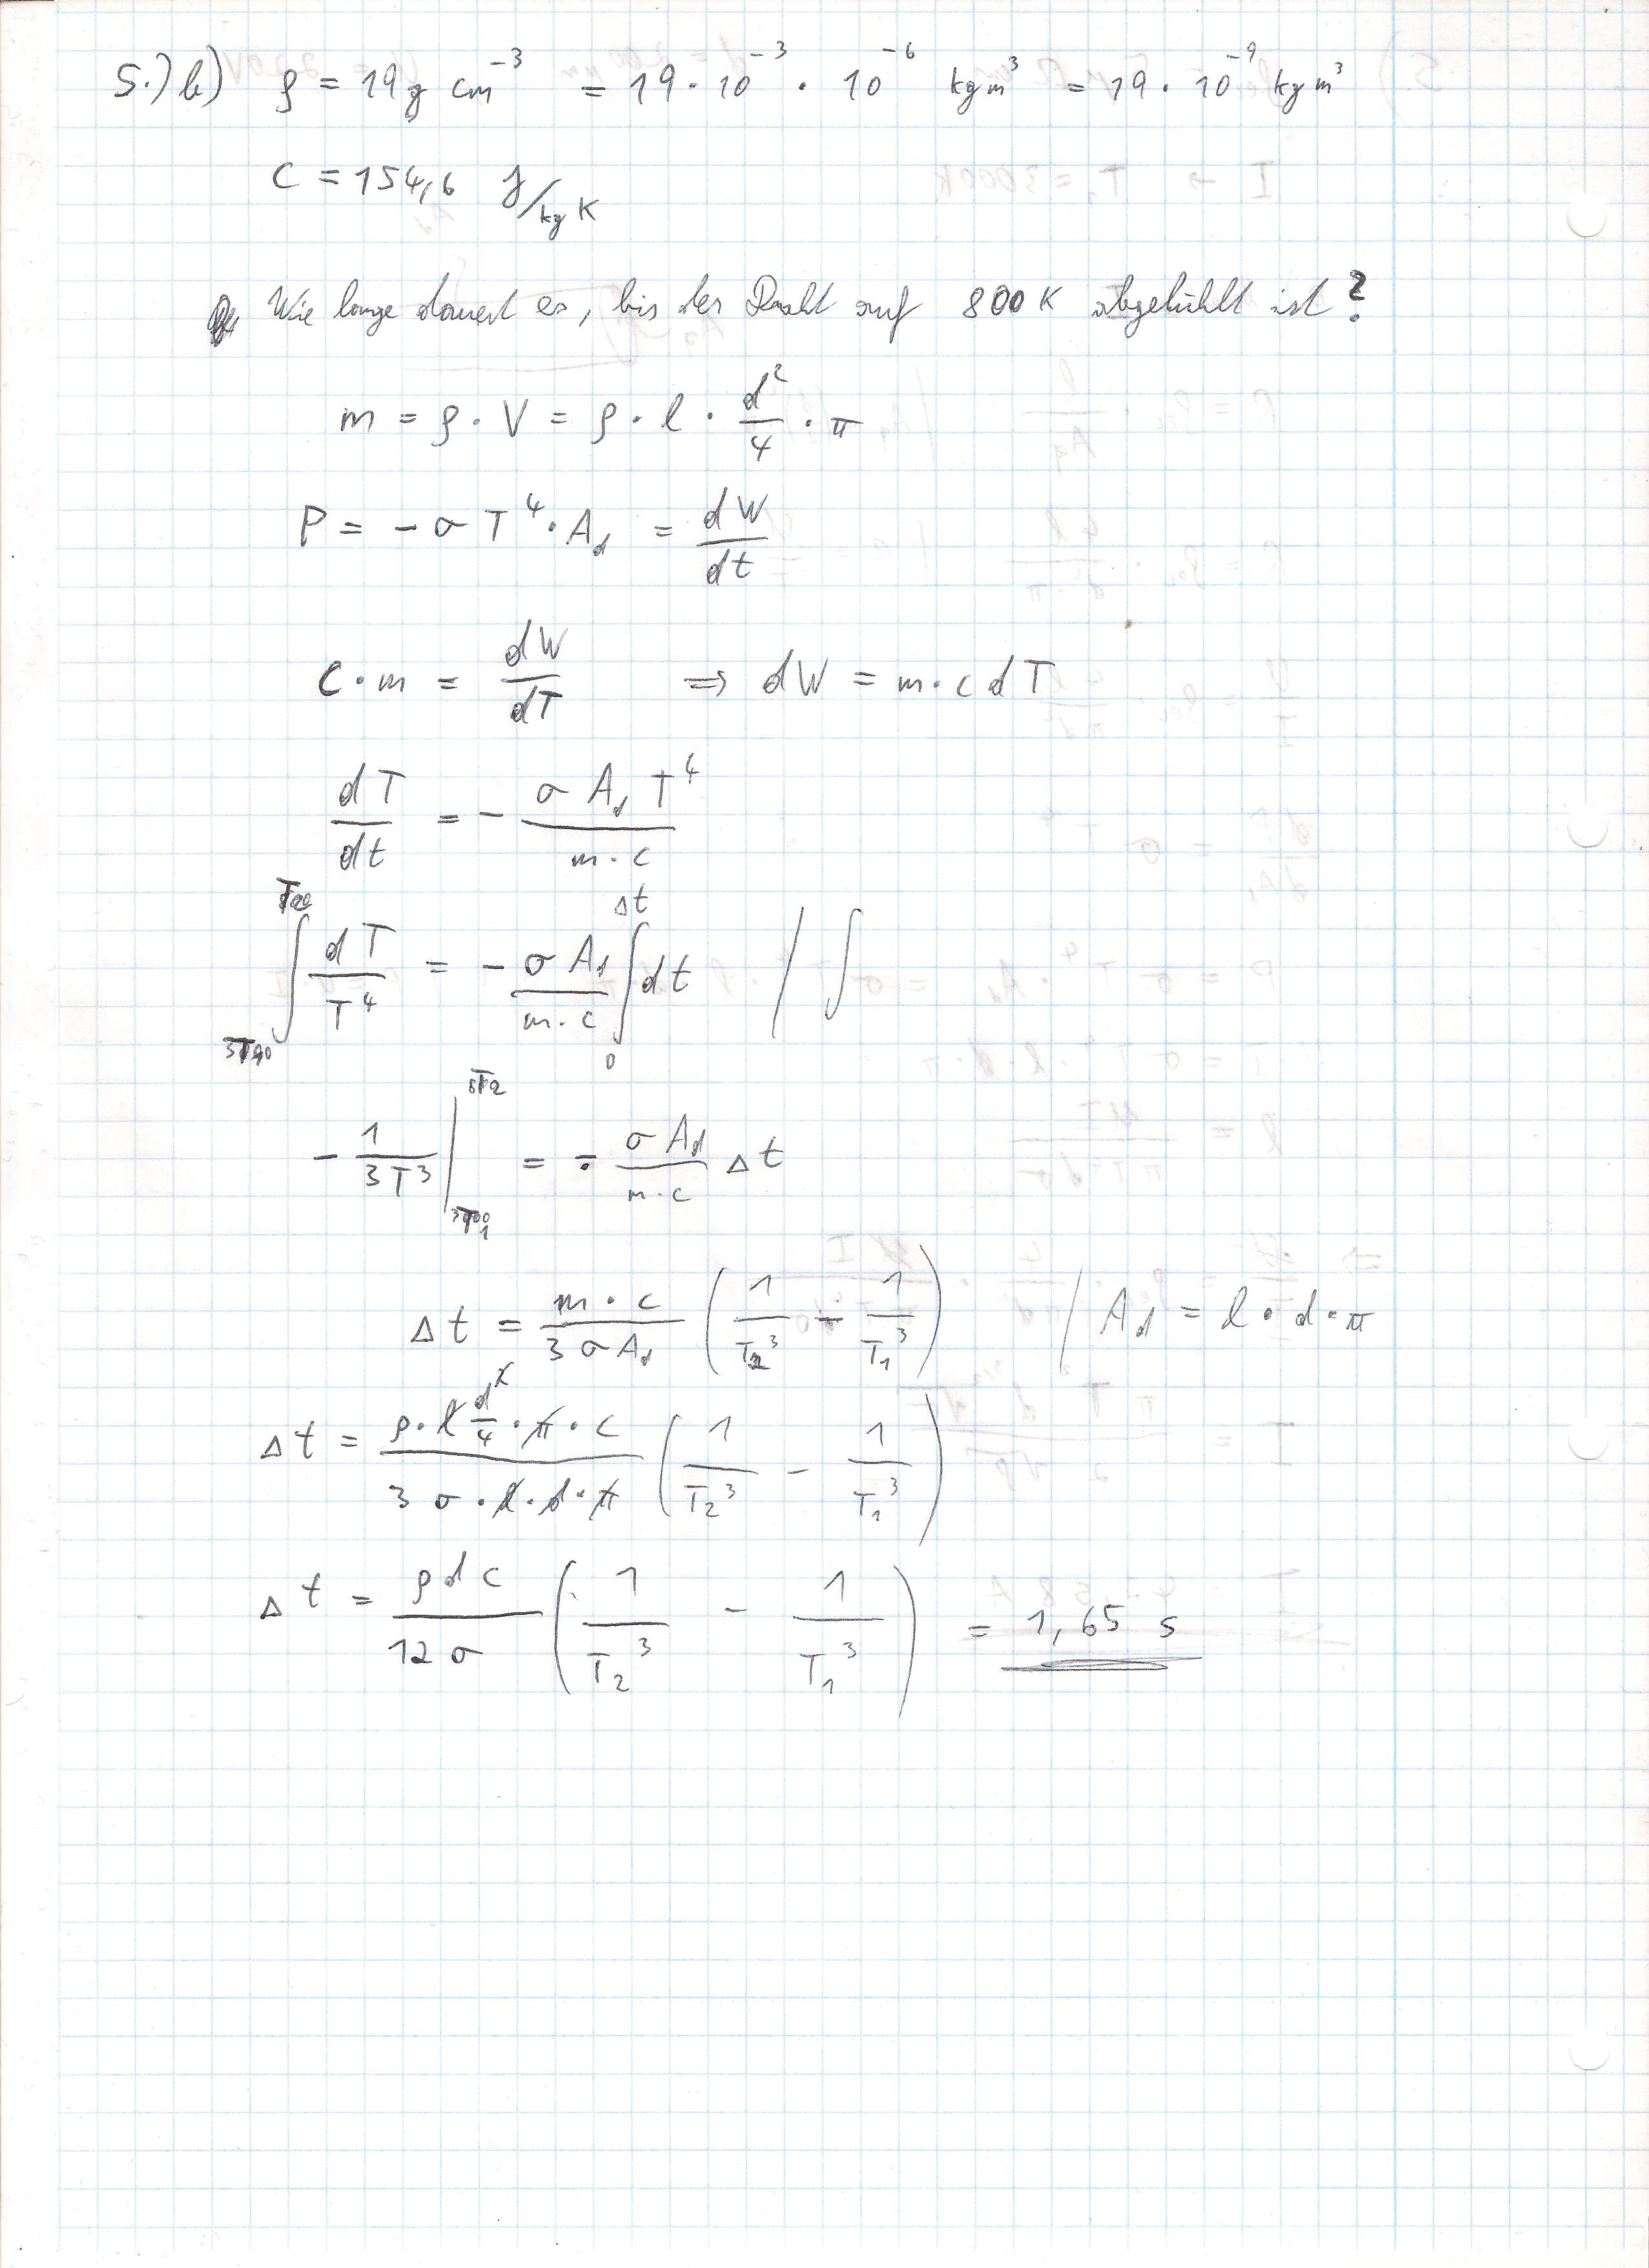 5.) b) ρ = 19 g cm⁻³ = 19 · 10⁻³ · 10⁻⁶ kg m³ = 19 · 10⁻⁹ kg m³
C = 154,6 J/kg K
Wie lange dauert es, bis der Draht auf 800 K abgekühlt ist?
m = ρ · V = ρ · l · d²/4 · π
P = - σ T⁴ · A_d = dW/dt
C · m = dW/dT ⇒ dW = m · c dT
dT/dt = - σ A_d T⁴/m · c
∫ dT/T⁴ = - σ A_d/m · c ∫₀^Δt dt / ∫
- 1/3T³ | = - σ A_d/m · c Δt
Δt = m · c/3 σ A_d (1/T₂³ - 1/T₁³) / A_d = l · d · π
Δt = ρ · l d²/4 · π · c/3 σ · l · d · π (1/T₂³ - 1/T₁³)
Δt = ρ d c/12 σ (1/T₂³ - 1/T₁³) = 1,65 s